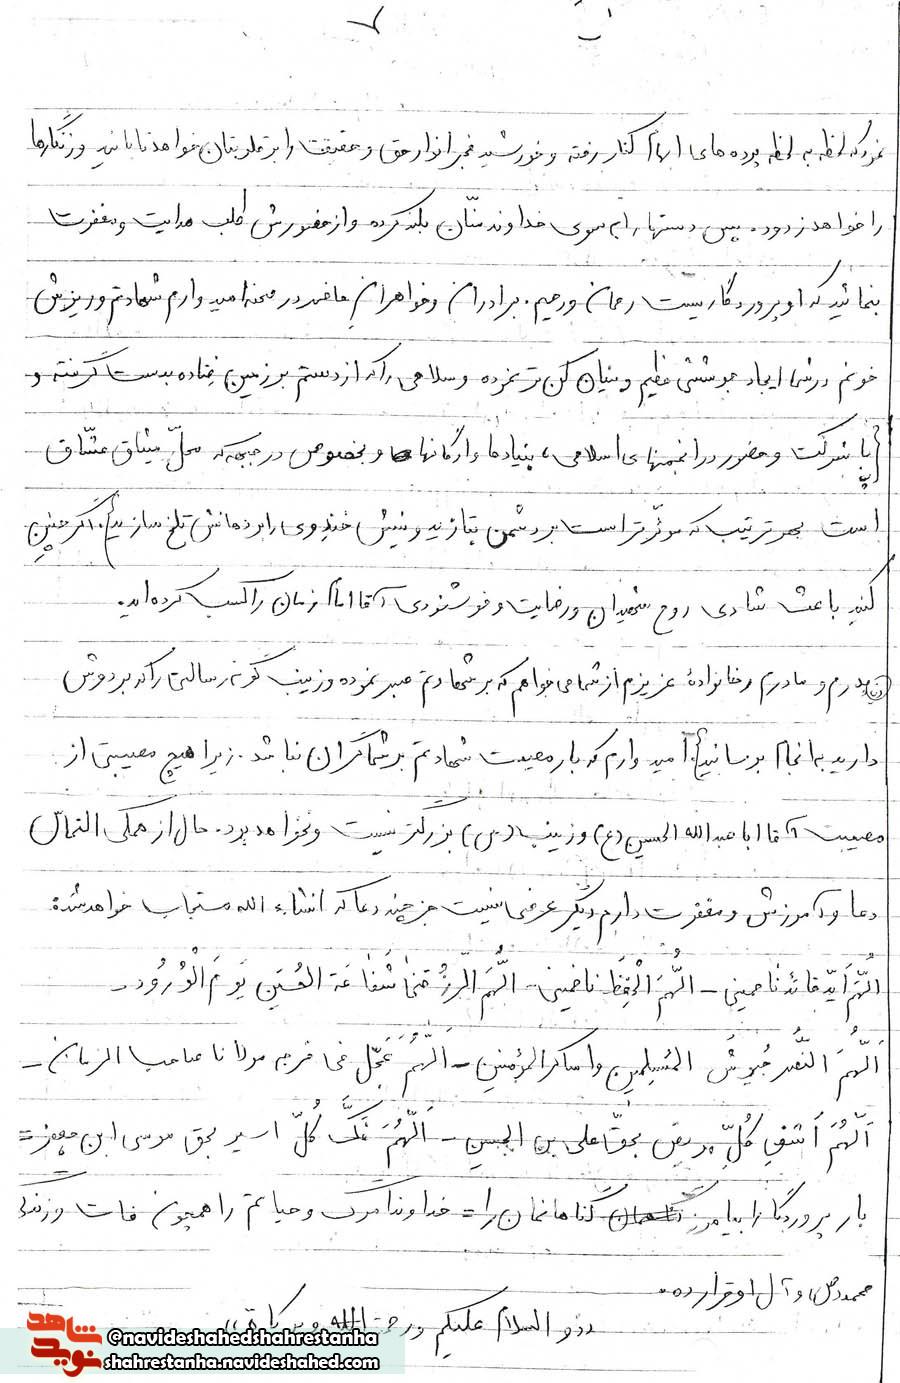 نمود که لحظه به لحظه پرده های ابهام کنار رفته و خورشید فجر انوار حق و حقیقت را بر قلوبتان خواهد تابانید و زنگارها
را خواهد زدود. پس دستها را بسوی خداوند منّان بلند کرده و از حضورش طلب هدایت و مغفرت
بنمائید که او پروردگاریست رحمان و رحیم. برادران و خواهرانِ حاضر در صحنه امیدوارم شهادتم و ریزش
خونم در شما ایجاد جوششی عظیم و بنیان کن تر نموده و سلاحی را که از دستم بر زمین فتاده بدست گرفته و
با شرکت و حضور در انجمنهای اسلامی، بنیادها و ارگانها و بخصوص در جبهه که محلّ میثاق عشّاق
است بهر ترتیب که موثّرتر است بر دشمن بتازید و نیش را بر دهانش تلخ سازید. اگر چنین
کنید باعث شادی روح شهیدان و رضایت و خوشنودی آقا امام زمان را کسب کرده اید.
پدرم و مادرم و خانوادهٔ عزیزم از شما می خواهم که بر شهادتم صبر نموده و زینب گونه رسالتی را که بر دوش
دارید به انجام برسانید. امیدوارم که بار مصیبت شهادتم بر شما گران نباشد. زیرا هیچ مصیبتی از
مصیبت آقا ابا عبدالله الحسین (ع) و زینب (س) بزرگتر نیست و نخواهد بود. حال از همگی التماس
دعا و آمرزش و مغفرت دارم دیگر عرضی نیست جز چند دعا که انشاء الله مستجاب خواهد شد.
اللّهُمَّ أیّد قائدَنا خمینی - اللّهُمَ الْحفِظَ ناخمینی - اللّهُمَ الرّزُقنا شَفاعَة الحُسَین یَومَ الْوُرُود -
اَللّهُمَ النّصُر جُیوشَ المُسلِمین و اساکر المؤمنین - اَللّهُمَ عَجّل فی فرجه مولانا صاحب الزمان -
اَللّهُمَ اَشفِ کُلِّ مریض بحقّ علی بن الحسین - اَللّهُمَ فکَّ کُلّ اسیر بحق موسی ابن جعفر =
بار پروردگارا بیامرز گناهانمان را = خداوندا مرگ و حیاتم را همچون ممات و زندگی
محمد (ص) و آل او قرار ده.
والسلام علیکم و رحمة الله و برکاته
شاهد
نوید
@navideshahedshahrestanha
shahrestanha.navideshahed.com